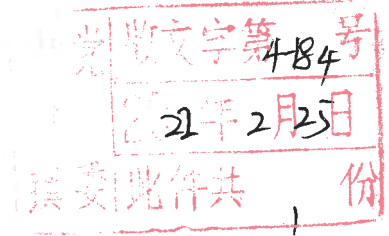 党 收文字第484号
22年2月25日
委 此件共1份